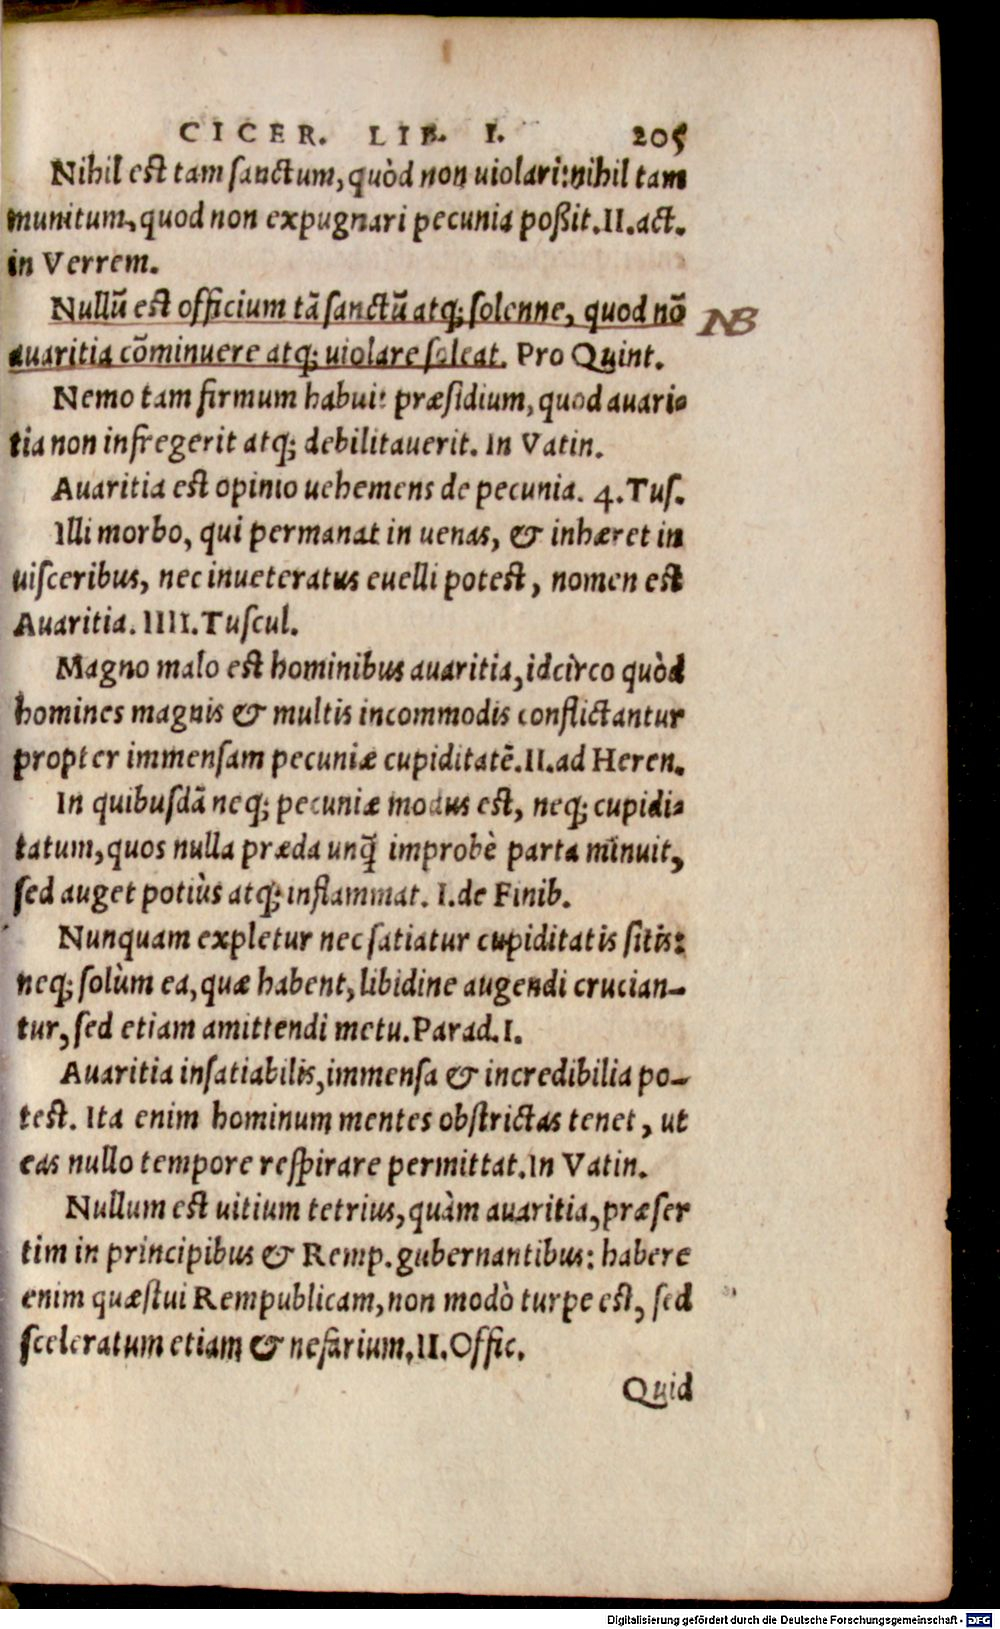 CICER. LIB. I. 205
Nihil est tam sanctum, quòd non uiolari: nihil tam
munitum, quod non expugnari pecunia poßit. II. act.
in Verrem.
Nullũ est officium tã sanctũ atq; solenne, quod nõ
auaritia cõminuere atq; uiolare soleat. Pro Quint.
NB
Nemo tam firmum habuit præsidium, quod auari-
tia non infregerit atq; debilitauerit. In Vatin.
Auaritia est opinio uehemens de pecunia. 4. Tus.
Illi morbo, qui permanat in uenas, & inhæret in
uisceribus, nec inueteratus euelli potest, nomen est
Auaritia. IIII. Tuscul.
Magno malo est hominibus auaritia, idcirco quòd
homines magnis & multis incommodis conflictantur
propter immensam pecuniæ cupiditatē. II. ad Heren.
In quibusdã neq; pecuniæ modus est, neq; cupidi-
tatum, quos nulla præda unq̃ improbè parta minuit,
sed auget potiùs atq; inflammat. I. de Finib.
Nunquam expletur nec satiatur cupiditatis sitis:
neq; solùm ea, quæ habent, libidine augendi crucian-
tur, sed etiam amittendi metu. Parad. I.
Auaritia insatiabilis, immensa & incredibilia po-
test. Ita enim hominum mentes obstrictas tenet, ut
eas nullo tempore respirare permittat. In Vatin.
Nullum est uitium tetrius, quàm auaritia, præser
tim in principibus & Remp. gubernantibus: habere
enim quæstui Rempublicam, non modò turpe est, sed
sceleratum etiam & nefarium. II. Offic.
Quid
Digitalisierung gefördert durch die Deutsche Forschungsgemeinschaft - DFG